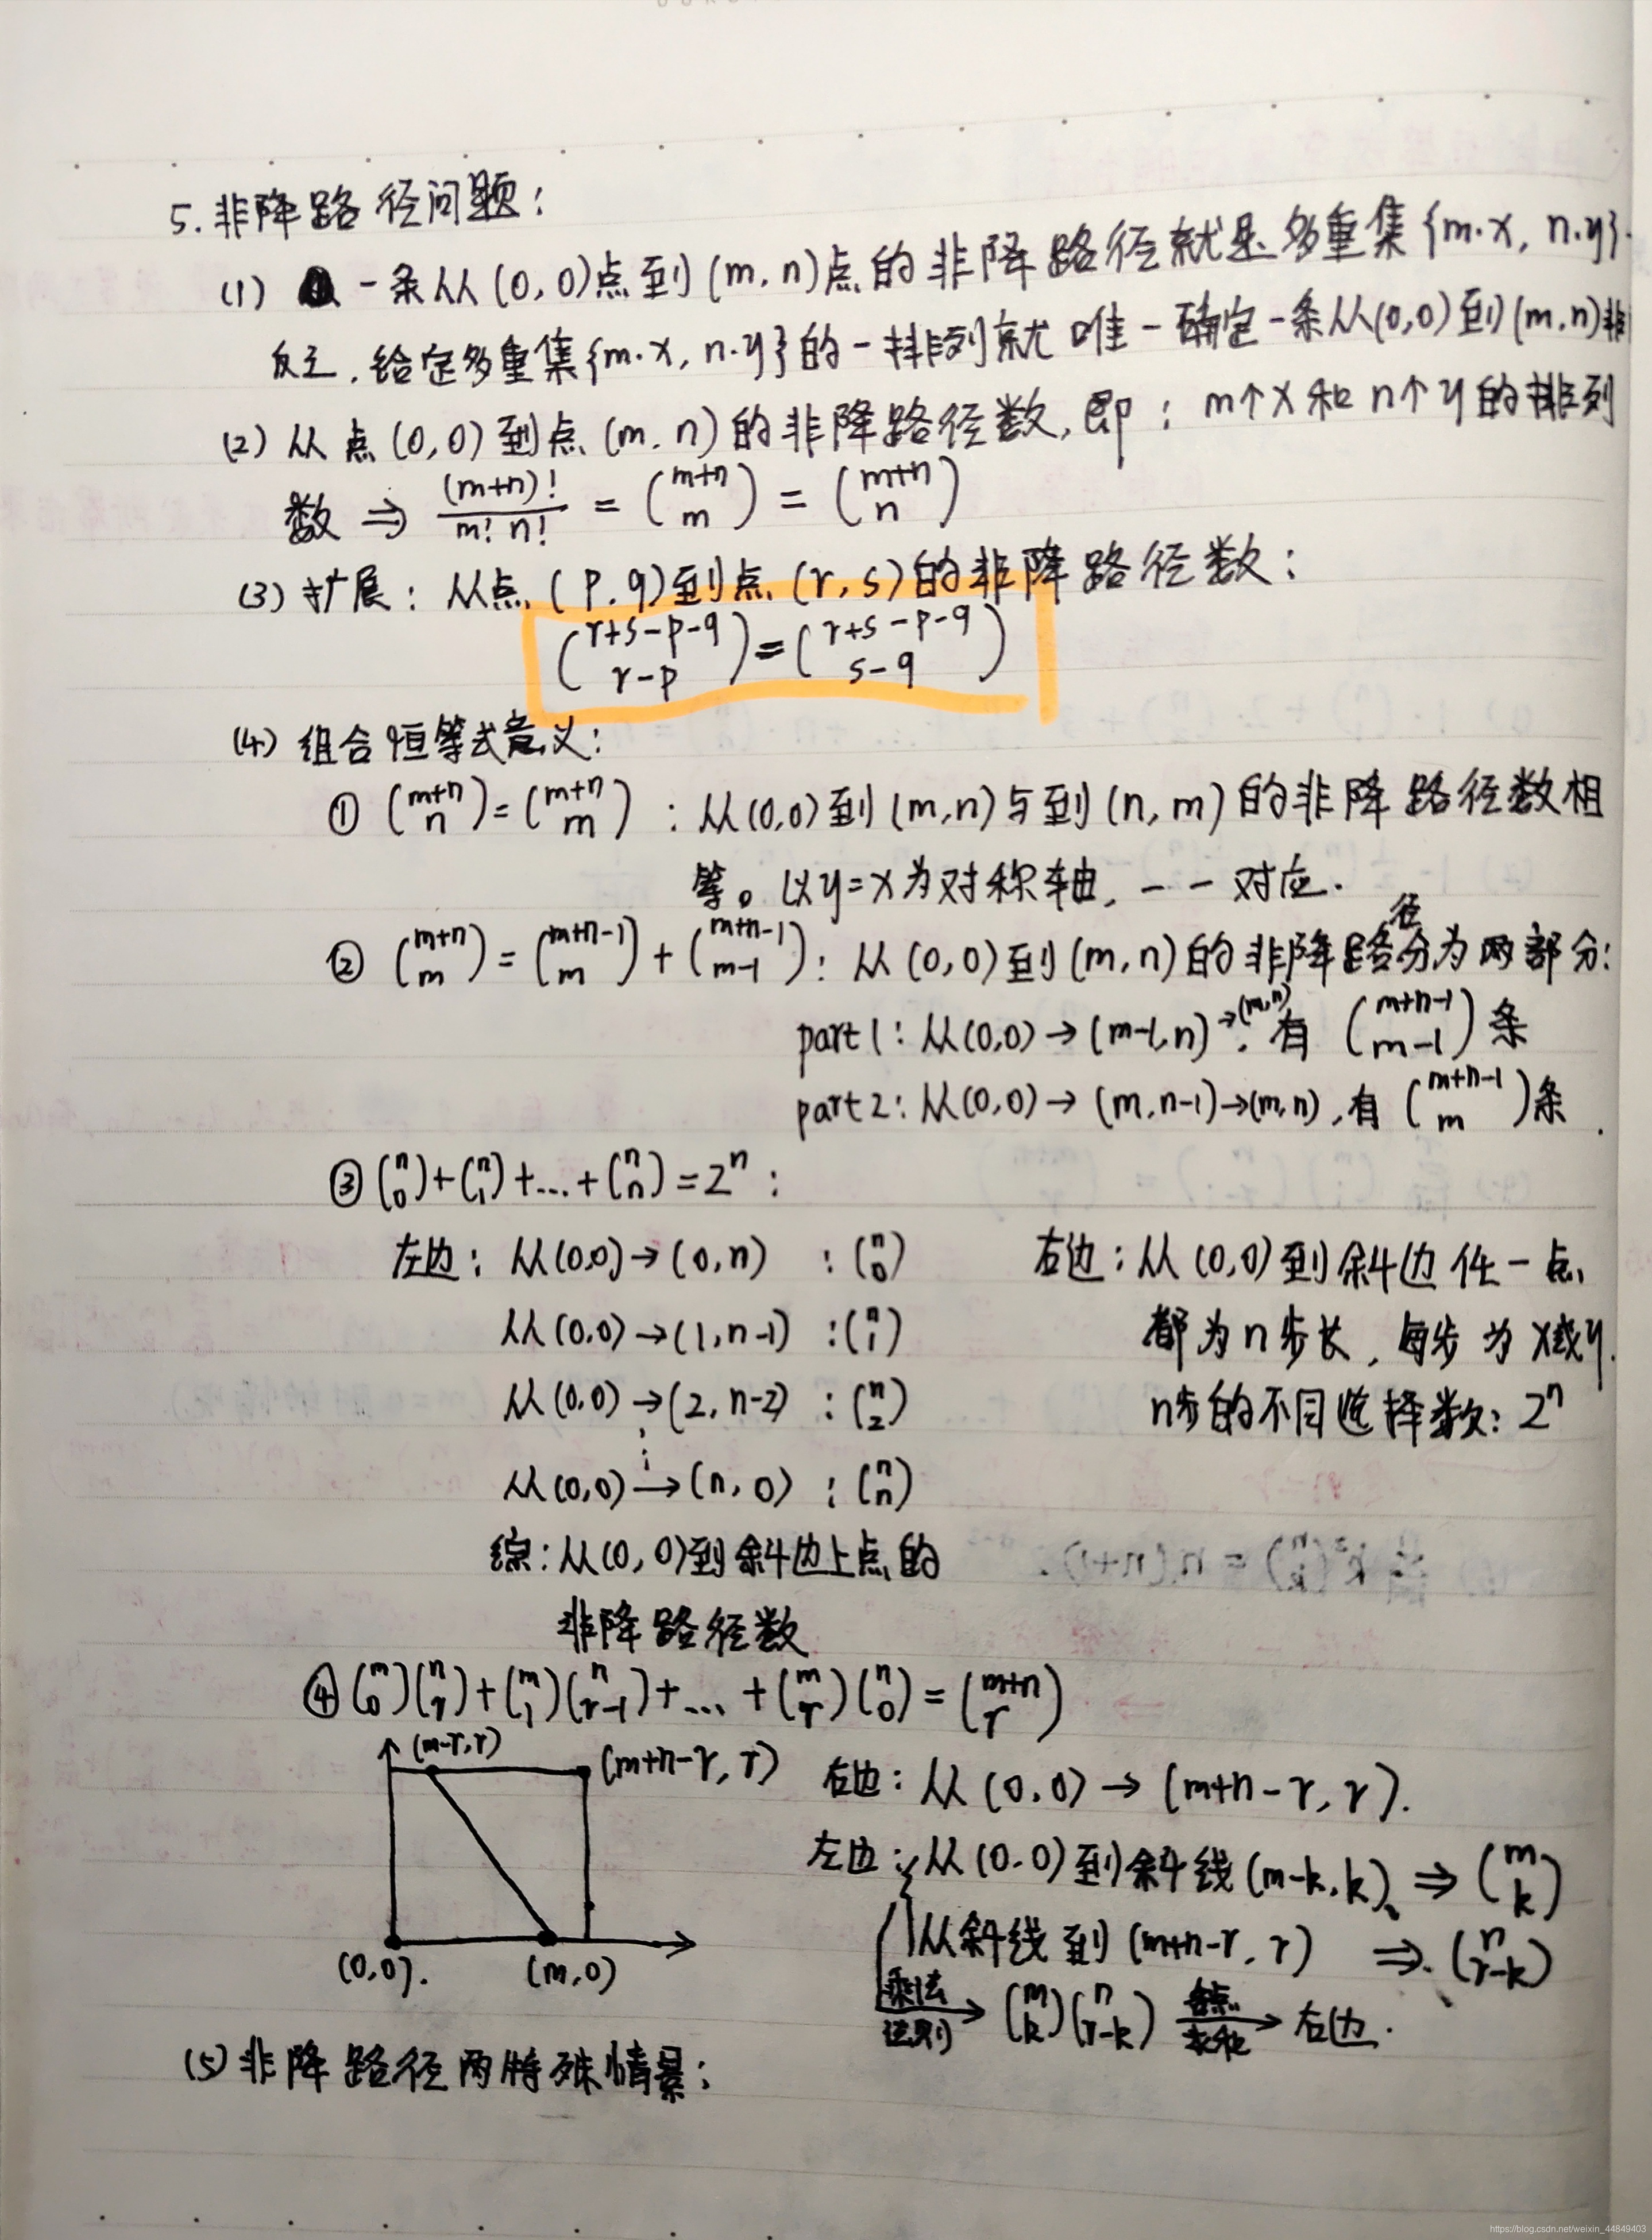 5. 非降路径问题：
(1) 一条从(0,0)点到(m,n)点的非降路径就是多重集{m·x, n·y}
反之，给定多重集{m·x, n·y}的一排列就唯一确定一条从(0,0)到(m,n)非
(2) 从点(0,0)到点(m,n)的非降路径数，即：m个x和n个y的排列
数 ⇒ (m+n)!/(m! n!) = (m+n m) = (m+n n)
(3) 扩展：从点(p,q)到点(r,s)的非降路径数：
(r+s-p-q r-p) = (r+s-p-q s-q)
(4) 组合恒等式意义：
① (m+n n) = (m+n m)：从(0,0)到(m,n)与到(n,m)的非降路径数相
等。以y=x为对称轴，一一对应.
② (m+n m) = (m+n-1 m) + (m+n-1 m-1)：从(0,0)到(m,n)的非降路径分为两部分：
part1：从(0,0)→(m-1,n)→(m,n)，有 (m+n-1 m-1)条
part2：从(0,0)→(m,n-1)→(m,n)，有 (m+n-1 m)条.
③ (n 0)+(n 1)+...+(n n)=2^n：
左边：从(0,0)→(0,n) ：(n 0) 右边：从(0,0)到斜边任一点
从(0,0)→(1,n-1) ：(n 1) 都为n步长，每步为x或y.
从(0,0)→(2,n-2) ：(n 2) n步的不同选择数：2^n
⋮
从(0,0)→(n,0) ：(n n)
综：从(0,0)到斜边上点的
非降路径数
④ (m 0)(n r)+(m 1)(n r-1)+...+(m r)(n 0)=(m+n r)
(m-r,r)
(m+n-r,r) 右边：从(0,0)→(m+n-r,r).
左边：从(0,0)到斜线(m-k,k) ⇒ (m k)
从斜线到(m+n-r,r) ⇒ (n r-k)
(0,0). (m,0)
乘法
法则 → (m k)(n r-k) 各点 求和 → 右边.
(5) 非降路径两特殊情景：
https://blog.csdn.net/weixin_44849403